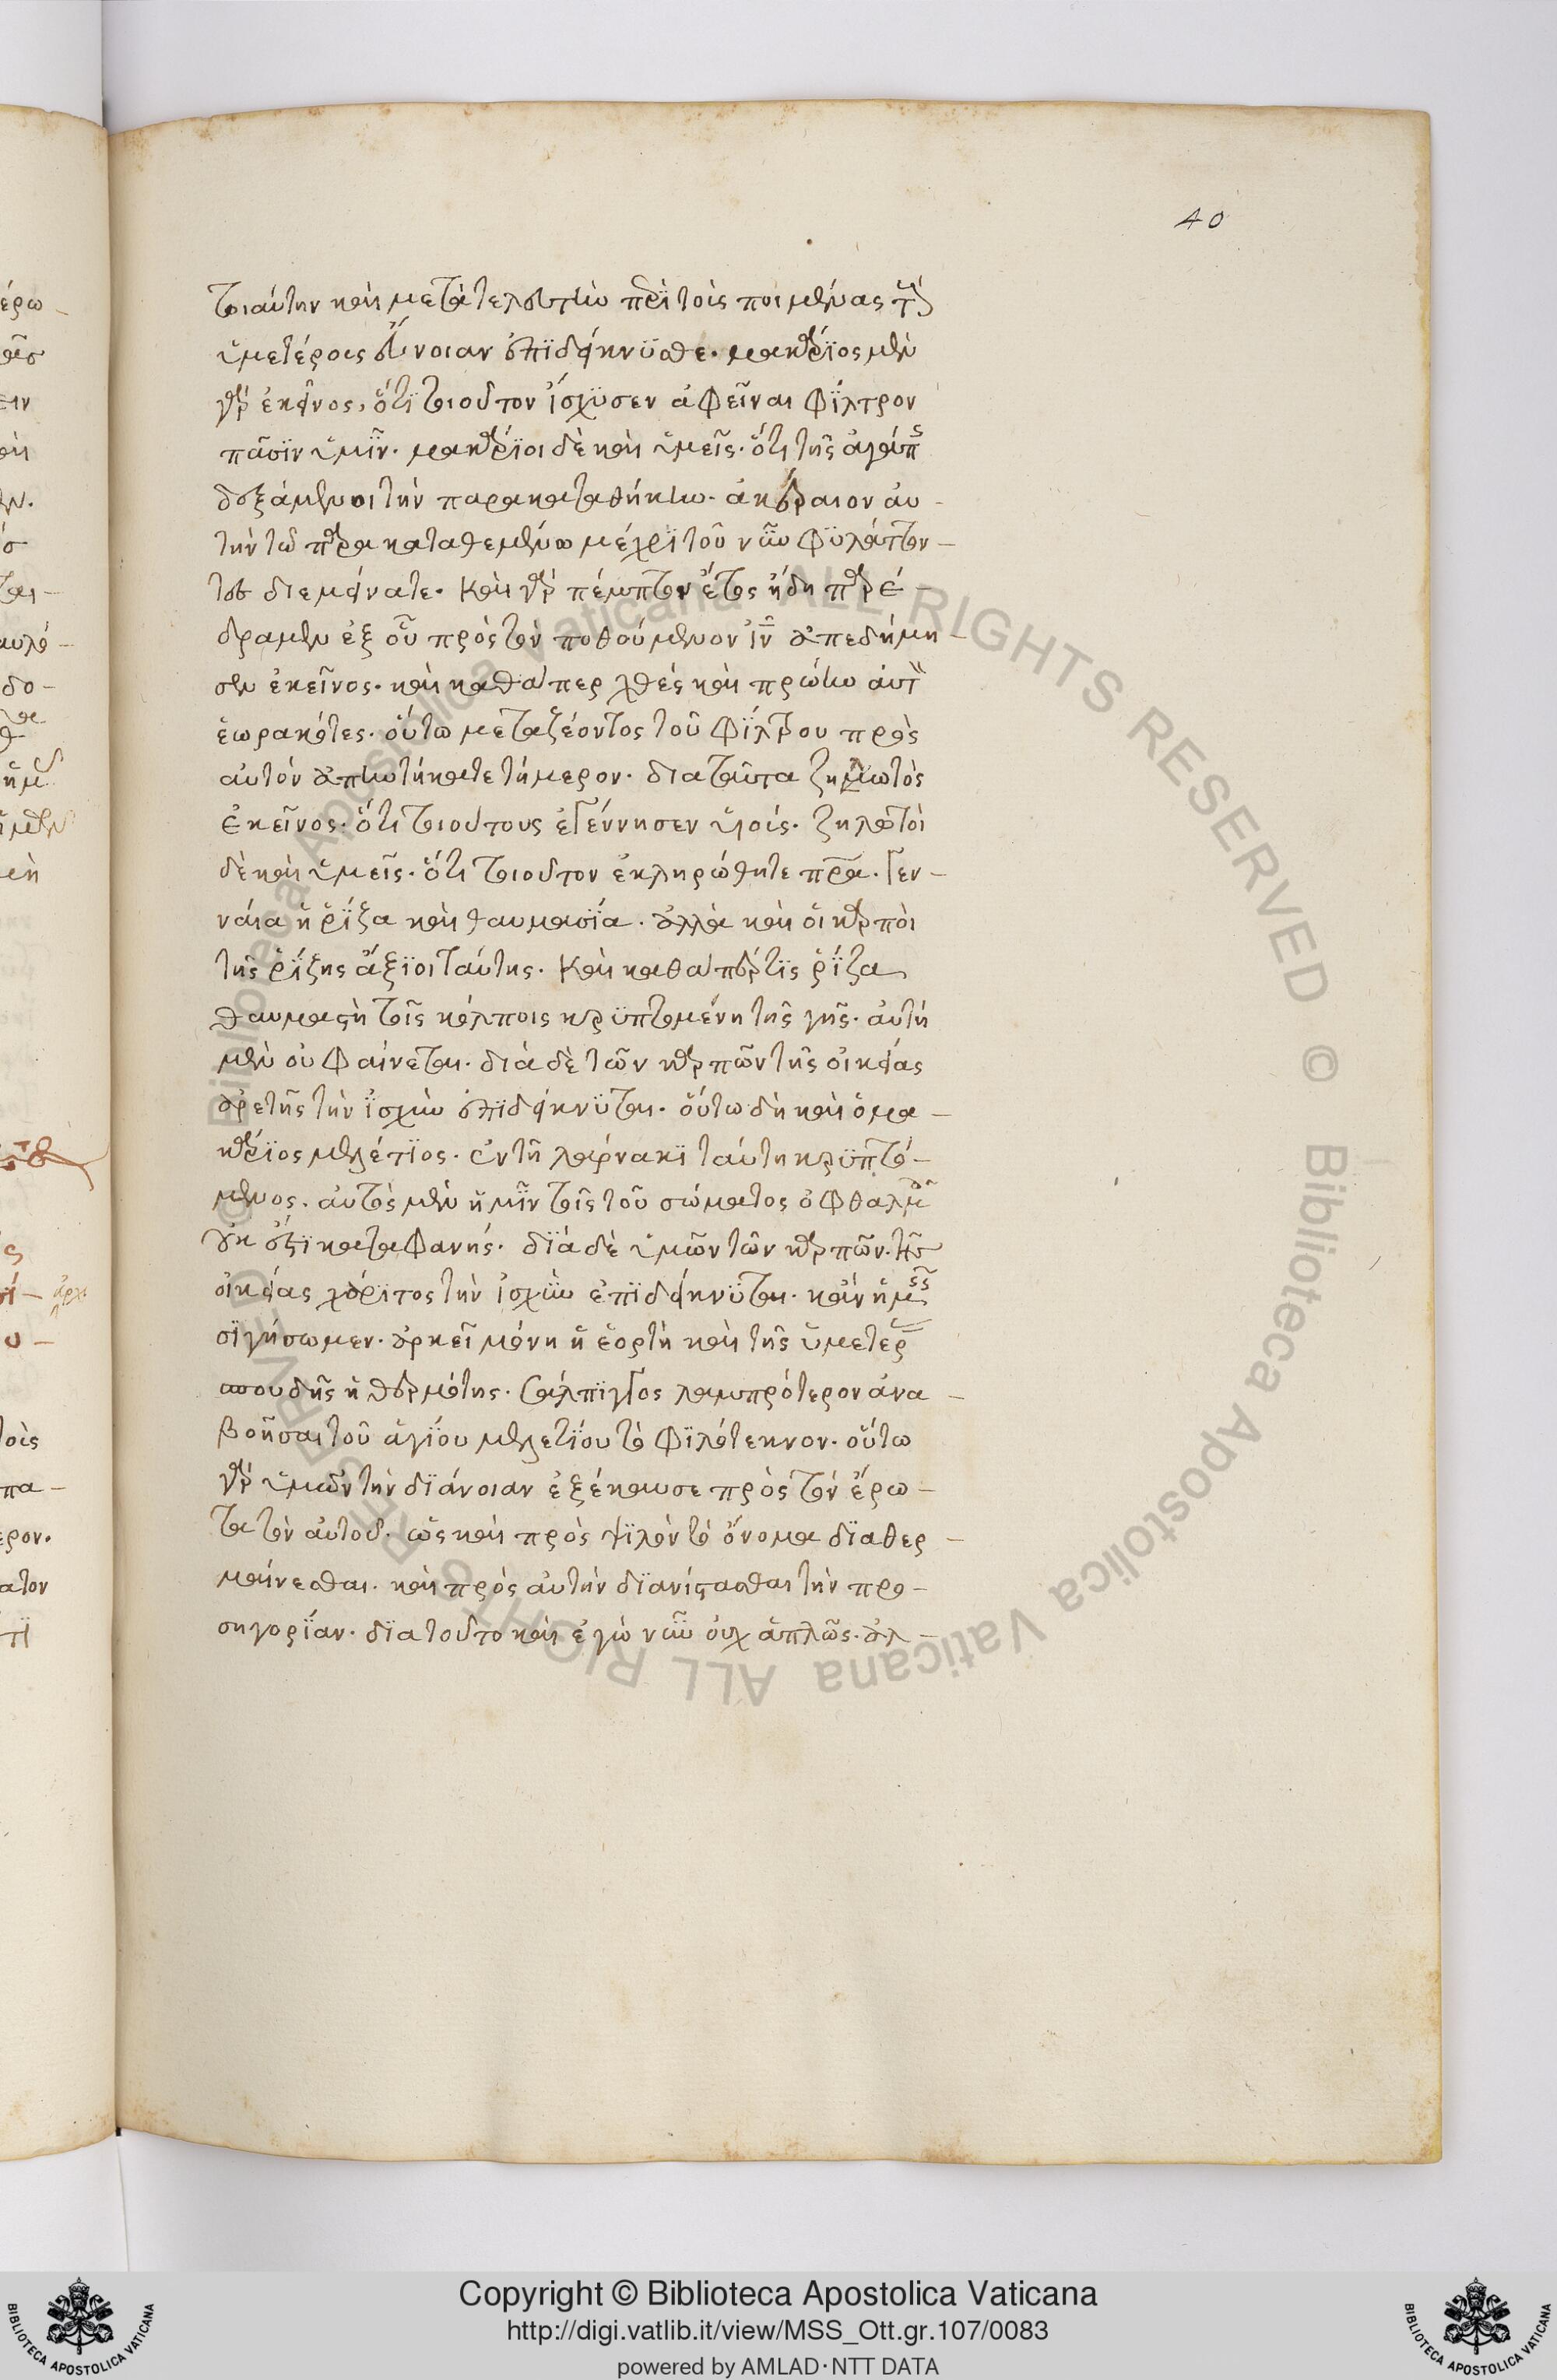 40
τοιαύτην καὶ μετὰ τελευτὴν περὶ τοὺς ποιμένας τοὺς
ὑμετέρους εὔνοιαν ἐπιδείκνυσθε. μακάριος μὲν
γὰρ ἐκεῖνος, ὅτι τοιοῦτον ἴσχυσεν ἀφεῖναι φίλτρον
πᾶσιν ὑμῖν. μακάριοι δὲ καὶ ὑμεῖς. ὅτι τῆς ἀγάπης
δεξάμενοι τὴν παρακαταθήκην. ἀκέραιον αὐ-
τὴν τῶ παρακαταθεμένω μέχρι τοῦ νῦν φυλάττον-
τες διεμείνατε. καὶ γὰρ πέμπτον ἔτος ἤδη παρέ-
δραμεν ἐξ οὗ πρὸς τὸν ποθούμενον ἰν ἀπεδήμη-
σεν ἐκεῖνος. καὶ καθάπερ χθὲς καὶ πρώην αὐτὸν
ἑωρακότες. οὕτω μετὰ ζέοντος τοῦ φίλτρου πρὸς
αὐτὸν ἀπηντήκατε τήμερον. διὰ ταῦτα ζηλωτὸς
ἐκεῖνος. ὅτι τοιούτους ἐγέννησεν υἱούς. ζηλωτοὶ
δὲ καὶ ὑμεῖς. ὅτι τοιοῦτον ἐκληρώθητε πρα. γεν-
ναία ἡ ῥίζα καὶ θαυμασία. ἀλλὰ καὶ οἱ καρποὶ
τῆς ῥίζης ἄξιοι ταύτης. καὶ καθάπερ τις ῥίζα
θαυμαστὴ τοῖς κόλποις κρυπτομένη τῆς γῆς. αὐτὴ
μὲν οὐ φαίνεται. διὰ δὲ τῶν καρπῶν τῆς οἰκείας
ἀρετῆς τὴν ἰσχὺν ἐπιδείκνυται. οὕτω δὴ καὶ ὁ μα-
κάριος μελέτιος. ἐν τῆ λάρνακι ταύτη κρυπτό-
μενος. αὐτὸς μὲν ἡμῖν τοῖς τοῦ σώματος ὀφθαλμοῖς
οὐκ ἔστι καταφανής. διὰ δὲ ὑμῶν τῶν καρπῶν. τῆς
οἰκείας χάριτος τὴν ἰσχὺν ἐπιδείκνυται. κἂν ἡμεῖς
σιγήσωμεν. ἀρκεῖ μόνη ἡ ἑορτὴ καὶ τῆς ὑμετέρας
σπουδῆς ἡ θερμότης. σάλπιγγος λαμπρότερον ἀνα-
βοῆσαι τοῦ ἁγίου μελετίου τὸ φιλότεκνον. οὕτω
γὰρ ὑμῶν τὴν διάνοιαν ἐξέκαυσε πρὸς τὸν ἔρω-
τα τὸν αὐτοῦ. ὡς καὶ πρὸς ψιλὸν τὸ ὄνομα διαθερ-
μαίνεσθαι. καὶ πρὸς αὐτὴν διανίστασθαι τὴν προ-
σηγορίαν. διατοῦτο καὶ ἐγὼ νῦν οὐχ ἁπλῶς. ἀλ-
Copyright © Biblioteca Apostolica Vaticana
http://digi.vatlib.it/view/MSS_Ott.gr.107/0083
powered by AMLAD·NTT DATA